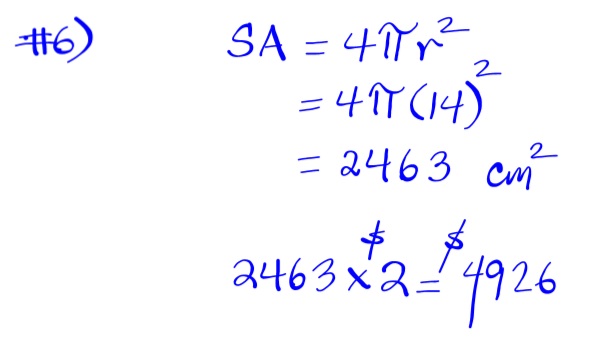 #6) SA = 4πr²
= 4π(14)²
= 2463 cm²
2463 × $2 = $4926